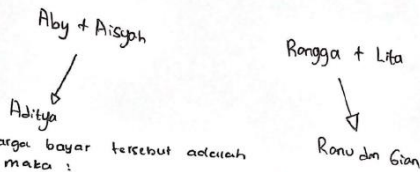 Aby + Aisyah
Rangga + Lita
Aditya
Ranu dan Gian
arga bayar tersebut adalah
maka :